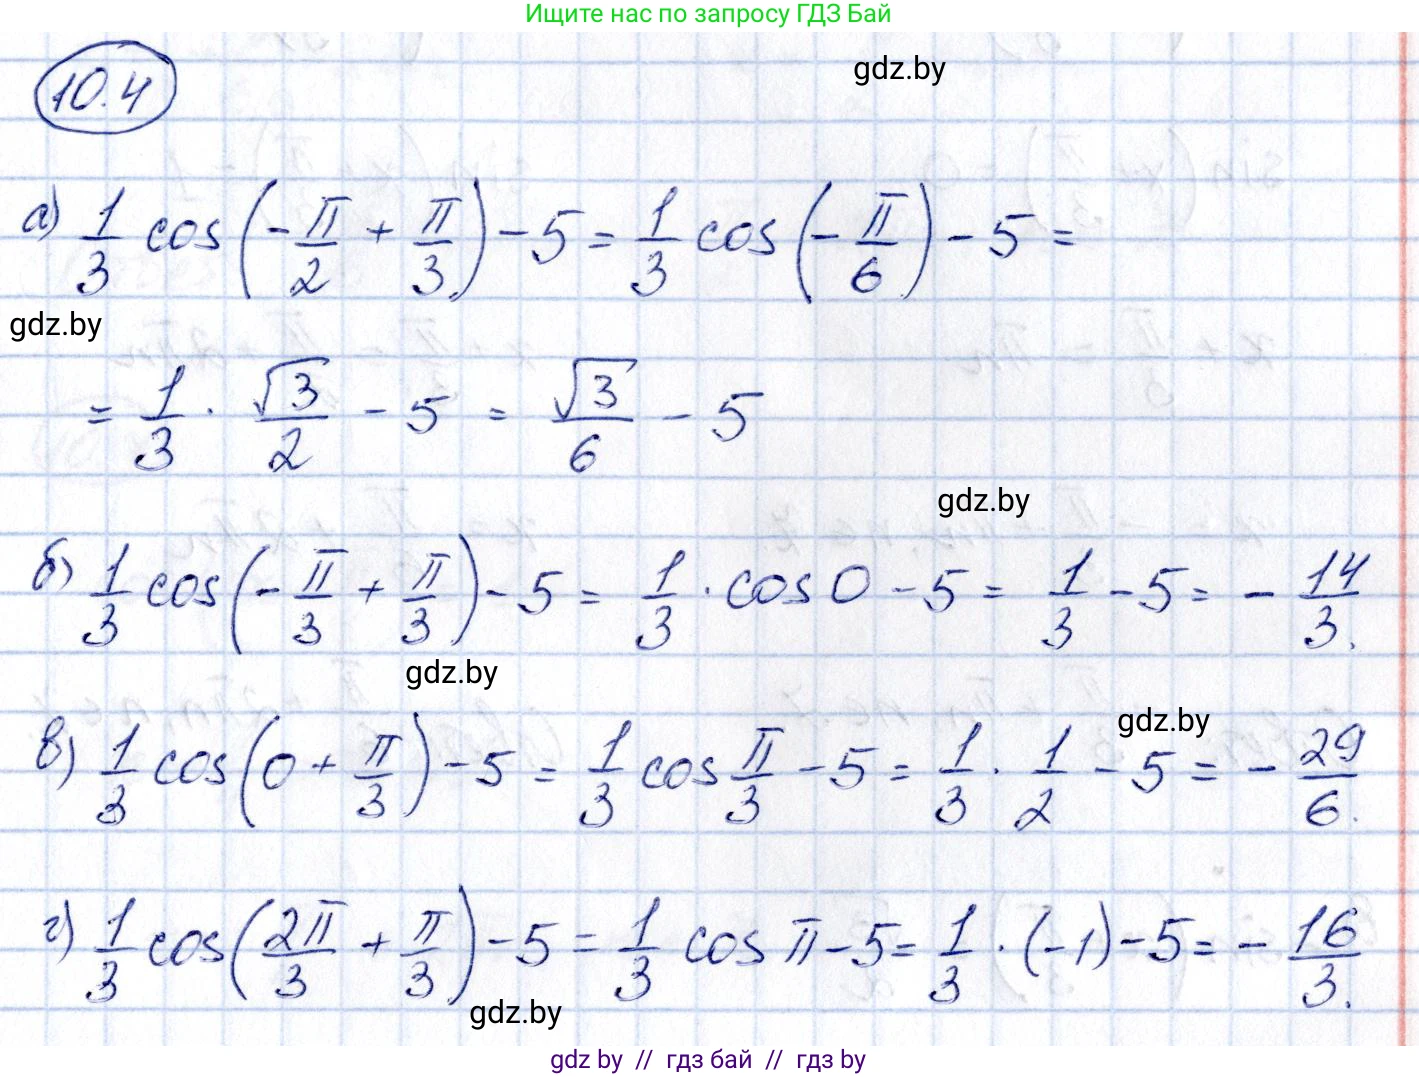 Ищите нас по запросу ГДЗ Бай
10.4
gdz.by
а) 1/3 cos(-π/2 + π/3) - 5 = 1/3 cos(-π/6) - 5 =
gdz.by
= 1/3 · √3/2 - 5 = √3/6 - 5
gdz.by
б) 1/3 cos(-π/3 + π/3) - 5 = 1/3 · cos 0 - 5 = 1/3 - 5 = - 14/3.
gdz.by
gdz.by
в) 1/3 cos(0 + π/3) - 5 = 1/3 cos π/3 - 5 = 1/3 · 1/2 - 5 = - 29/6.
г) 1/3 cos(2π/3 + π/3) - 5 = 1/3 cos π - 5 = 1/3 · (-1) - 5 = - 16/3.
gdz.by
gdz by // гдз бай // гдз by